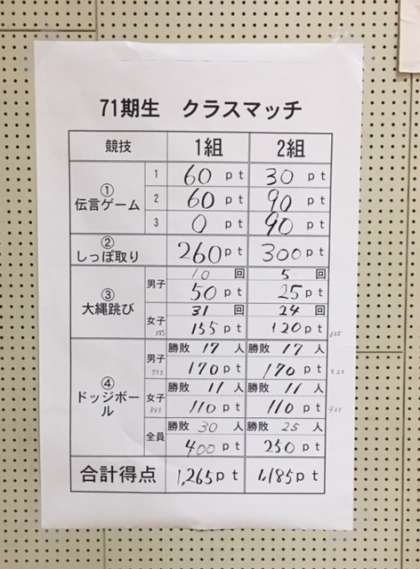 71期生 クラスマッチ
競技 1組 2組
① 伝言ゲーム
1 60pt 30pt
2 60pt 90pt
3 0pt 90pt
② しっぽ取り 260pt 300pt
③ 大縄跳び
男子 10回 5回
50pt 25pt
女子 31回 24回
155pt 120pt
④ ドッジボール
男子 勝敗 17人 勝敗 17人
170pt 170pt
女子 勝敗 11人 勝敗 11人
110pt 110pt
全員 勝敗 30人 勝敗 25人
400pt 250pt
合計得点 1,265pt 1,185pt